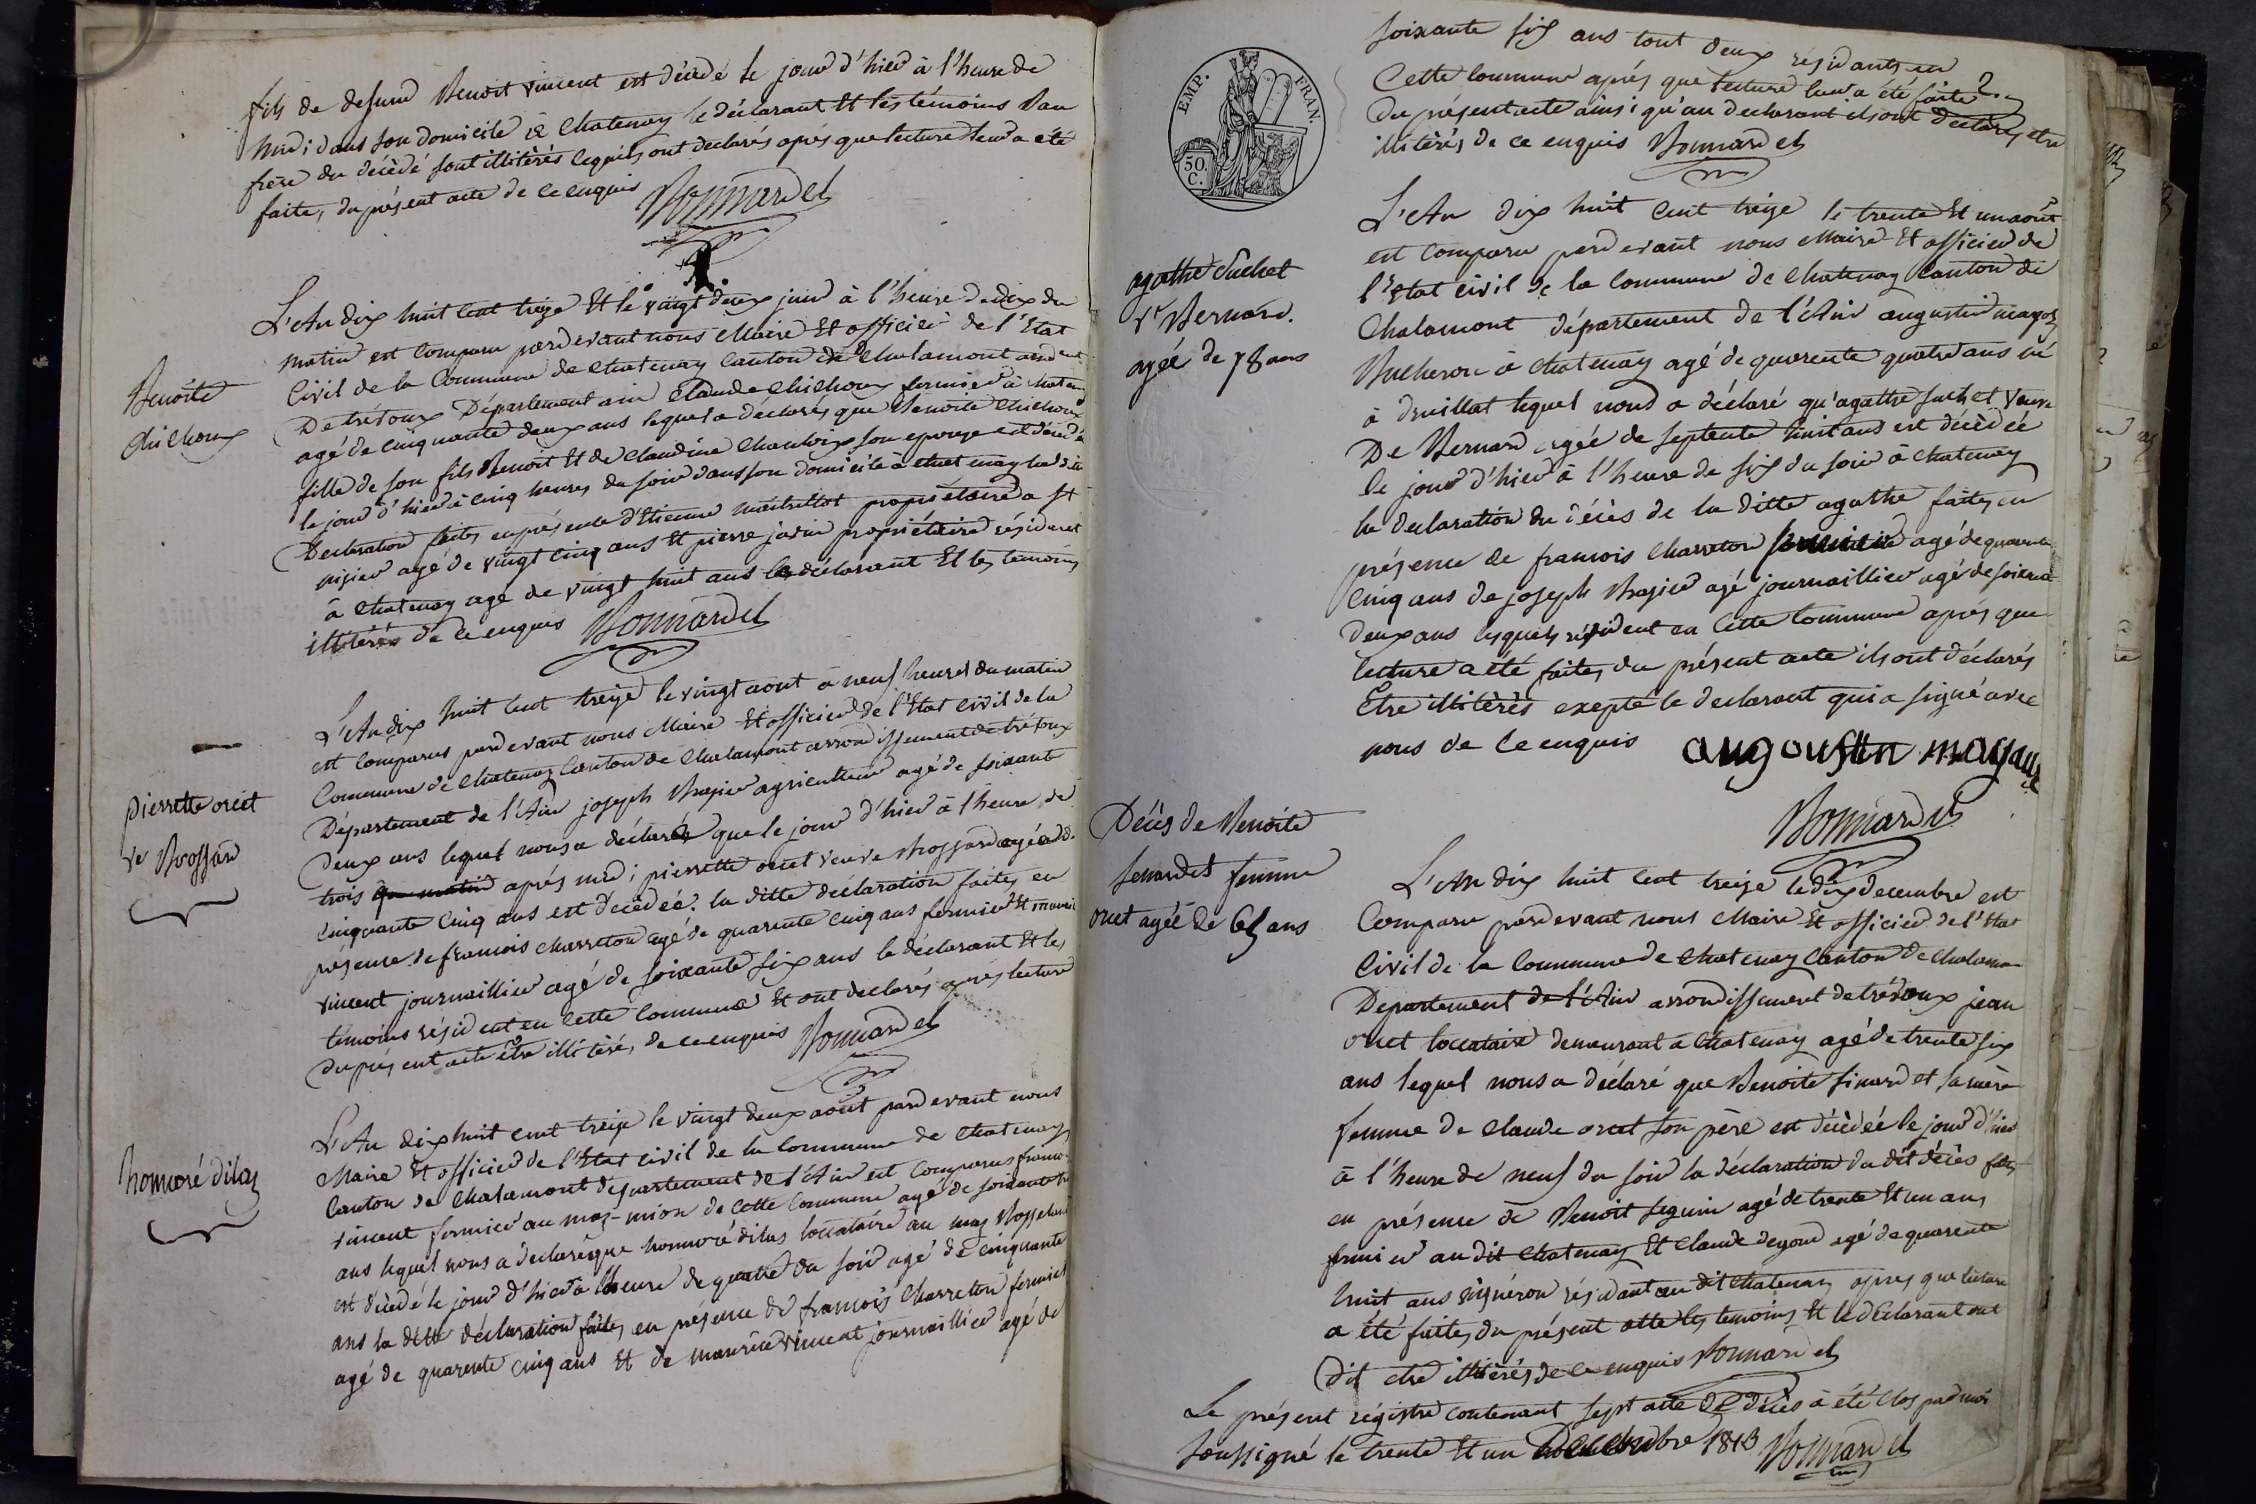 fils de defund Benoit vincent est décédé le jour d'hier à l'heure de
midi dans son domicile à Chatenay le déclarant Et les témoins dan
frere du décédé sont illitèrés lequels ont declarés après que lecture leur a été
faite, du présent acte de ce enquis Bonnardet
L'An dix huit cent treize Et le vingt deux juin à l'heure de dix du
matin est comparu pardevant nous Maire Et officier de l'Etat
Civil de la Commune de Chatenay Canton de Chalamont arrond
De trévoux Département ain Claude Chichoux fermier à Chatenay
agé de cinquante deux ans lequel a déclarés que Benoite Chichoux
fille de son fils Benoit Et de Claudine son epouse est décédé
le jour d'hier à cinq heures du soir dans son domicile à chatenay la dite
Declaration faites en présente d'Etienne propriétaire a St
nizier agé de vingt cinq ans Et pierre janin propriétaire résident
à Chatenay agé de vingt huit ans le déclarant Et les temoins
illitérés de ce enquis Bonnardet
Benoite
Chichoux
L'An dix huit cent treize le vingt aout à neuf heures du matin
est comparus pardevant nous Maire Et officier de l'Etat civil de la
Commune de Chatenay Canton de Chalamont arrondissement de trévoux
Département de l'Ain joseph Brazier agriculteur agé de soixante
Deux ans lequel nous a déclaré que le jour d'hier à l'heure de
trois du matin après midi pierrette oriet veuve Brossard agée de
cinquante cinq ans est décédée. la ditte déclaration faites en
présence de francois charreton agé de quarente cinq ans fermier Et mauric
vincent journaillier agé de soixante six ans le déclarant Et les
temoins résident en cette Commune Et ont declarés après lecture
du présent acte être illitéré, de ce enquis Bonnardet
pierrette oriet
ve Brossard
L'An dix huit cent treize le vingt deux août pardevant nous
Maire Et officier de l'Etat civil de la Commune de Chatenay
Canton de Chalamont département de l'Ain est comparus franco
vincent fermier au maz-mion de cette Commune agé de soixante
ans lequel nous a déclarés que honnoré dilas loccataire au maz
est décédé le jour d'hier à l'heure de quatre du soir agé de cinquante
ans la ditte déclaration faites en présence de francois Charreton fermier
agé de quarente cinq ans Et de maurice vincent journaillier agé de
honnoré dilas
soixante six ans tout deux résidants en
Cette Commune après que lecture leur a été faite
Du présent acte ainsi qu'au declarant ils ont déclarés etre
illitèrés de ce enquis Bonnardet
EMP. FRAN.
50. C.
L'An dix huit cent treize le trente Et un août
est comparu pardevant nous Maire Et officier de
l'Etat civil de la Commune de Chatenay Canton de
Chalamont département de l'Ain augustin
Bucheron à Chatenay agé de quarente quatre ans né
à druillat lequel nous a déclaré qu'agathe suchet veuve
De Bernard agée de septente huit ans est décèdée
le jour d'hier à l'heure de six du soir à Chatenay
la declaration du décès de la ditte agathe faites en
présence de francois Charreton fermier agé de quarente
Cinq ans de joseph Brazier agé journaillier agé de soixante
deux ans lesquels résident en Cette Commune après que
lecture a été faites du présent acte ils ont déclarés
Etre illitèrés exepté le declarant qui a signé avec
nous de ce enquis augoustin
Bonnardet
agathe Suchet
ve Bernard.
agée de 78 ans
L'An dix huit cent treize le dix decembre est
Comparu pardevant nous Maire Et officier de l'Etat
Civil de la Commune de Chatenay Canton de Chalamon
Departement de l'Ain arrondissement de trévoux jean
oriet loccataire demeurant à Chatenay agé de trente six
ans lequel nous a déclaré que Benoite sa mère
femme de Claude oriet son père est décèdée le jour d'hier
à l'heure de neuf du soir la déclaration du dit décès faites
en présence de Benoit seguin agé de trente Et un ans
fermier au dit Chatenay Et Claude agé de quarente
huit ans vignéron résidant au dit Chatenay apres que lecture
a été faites du présent acte les temoins Et le déclarant ont
dit etre illitèrés de ce enquis Bonnardet
Décès de Benoite
femme
oriet agée de ans
Le présent régistre contenant sept acte de décès à été clos par moi
soussigné le trente Et un decembre 1813 Bonnardet